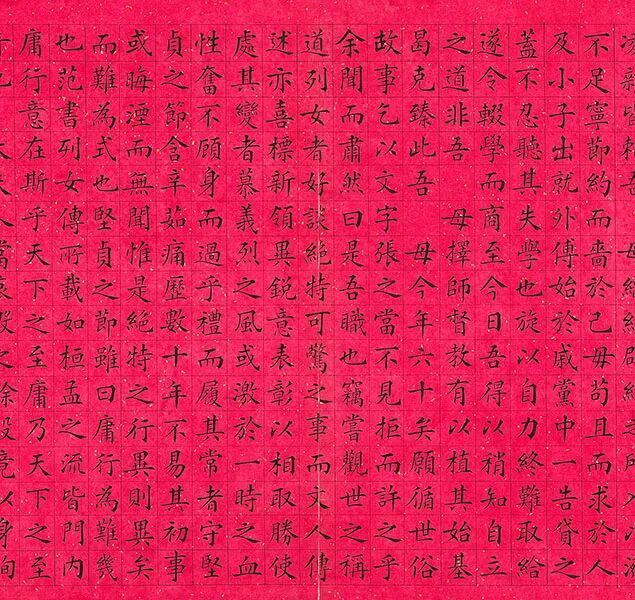 不足寧節約而嗇於己毋苟且而求於人
及小子出就外傅始於戚黨中一告貸之
蓋不忍聽其失學也旋以自力終難取給
遂令輟學而商至今日吾得以稍知自立
之道非吾 母擇師督教有以植其始基
曷克臻此吾 母今年六十矣願循世俗
故事乞以文字張之當不見拒而許之乎
余聞而肅然曰是吾職也竊嘗觀世之稱
道列女者好談絕特可驚之事而文人傳
述亦喜標新領異銳意表彰以相取勝使
處其變者慕義烈之風或激於一時之血
性奮不顧身而過乎禮而履其常者守堅
貞之節含辛茹痛歷數十年不易其初事
或晦湮而無聞惟是絕特之行異則異矣
而難為式也堅貞之節雖曰庸行為難幾
也范書列女傳所載如桓孟之流皆門內
庸行意在斯乎天下之至庸乃天下之至